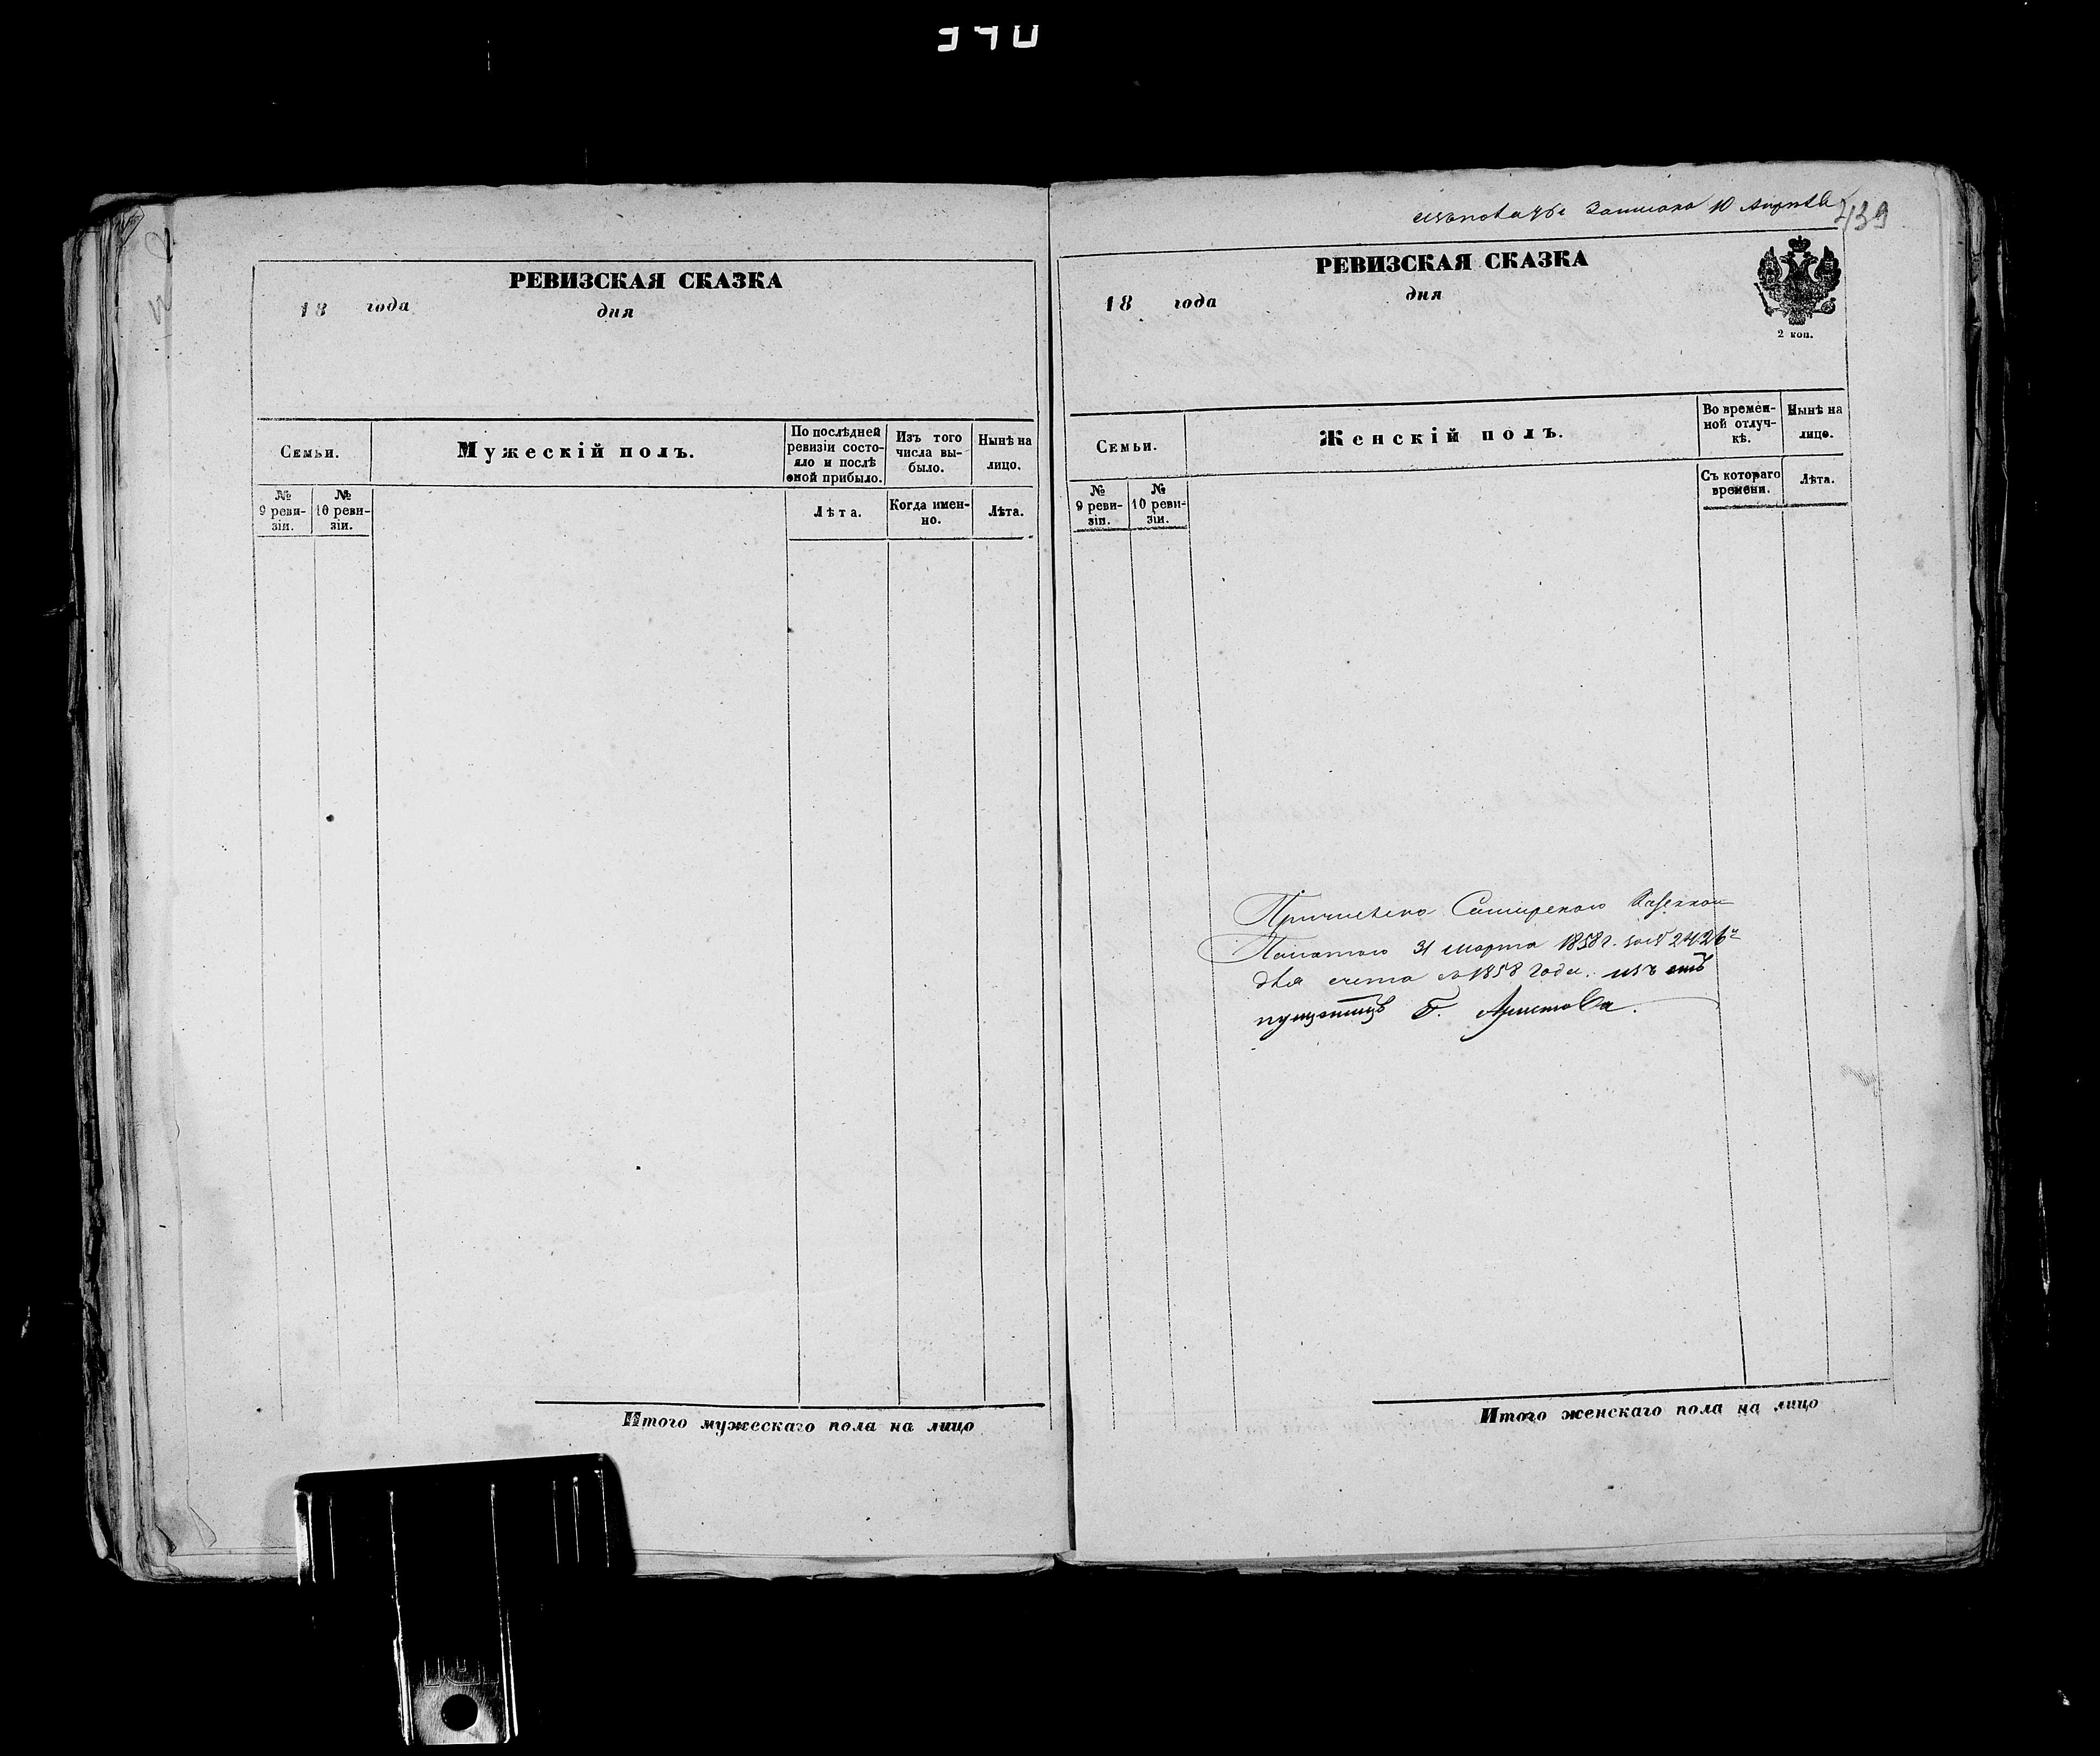 РЕВИЗСКАЯ СКАЗКА
18 года дня
Семьи.
Мужескій полъ.
По послѣдней
ревизіи состо-
яло и послѣ
оной прибыло.
Изъ того
числа вы-
было.
Нынѣ на
лицо.
№
9 реви-
зіи.
№
10 реви-
зіи.
Лѣта.
Когда имен-
но.
Лѣта.
Итого мужескаго пола на лицо
Записано 10 Апрѣля
439
РЕВИЗСКАЯ СКАЗКА
18 года дня
2 коп.
Семьи.
Женскій полъ.
Во времен-
ной отлуч-
кѣ.
Нынѣ на
лицо.
№
9 реви-
зіи.
№
10 реви-
зіи.
Съ котораго
времени.
Лѣта.
Причислено Казенною
Палатою 31 марта 1858 г. 2426
для счета съ 1858 года. изъ от
пущениць Г. Аристова.
Итого женскаго пола на лицо